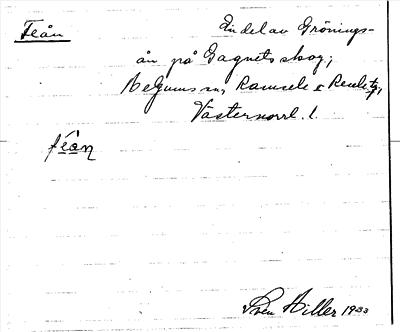 Feån
En del av Grönings-
ån på Gagnets skog;
Helgums sn, Ramsele o Resele tg,
Västernorrl. l.
féàn
Sven Hiller 1933